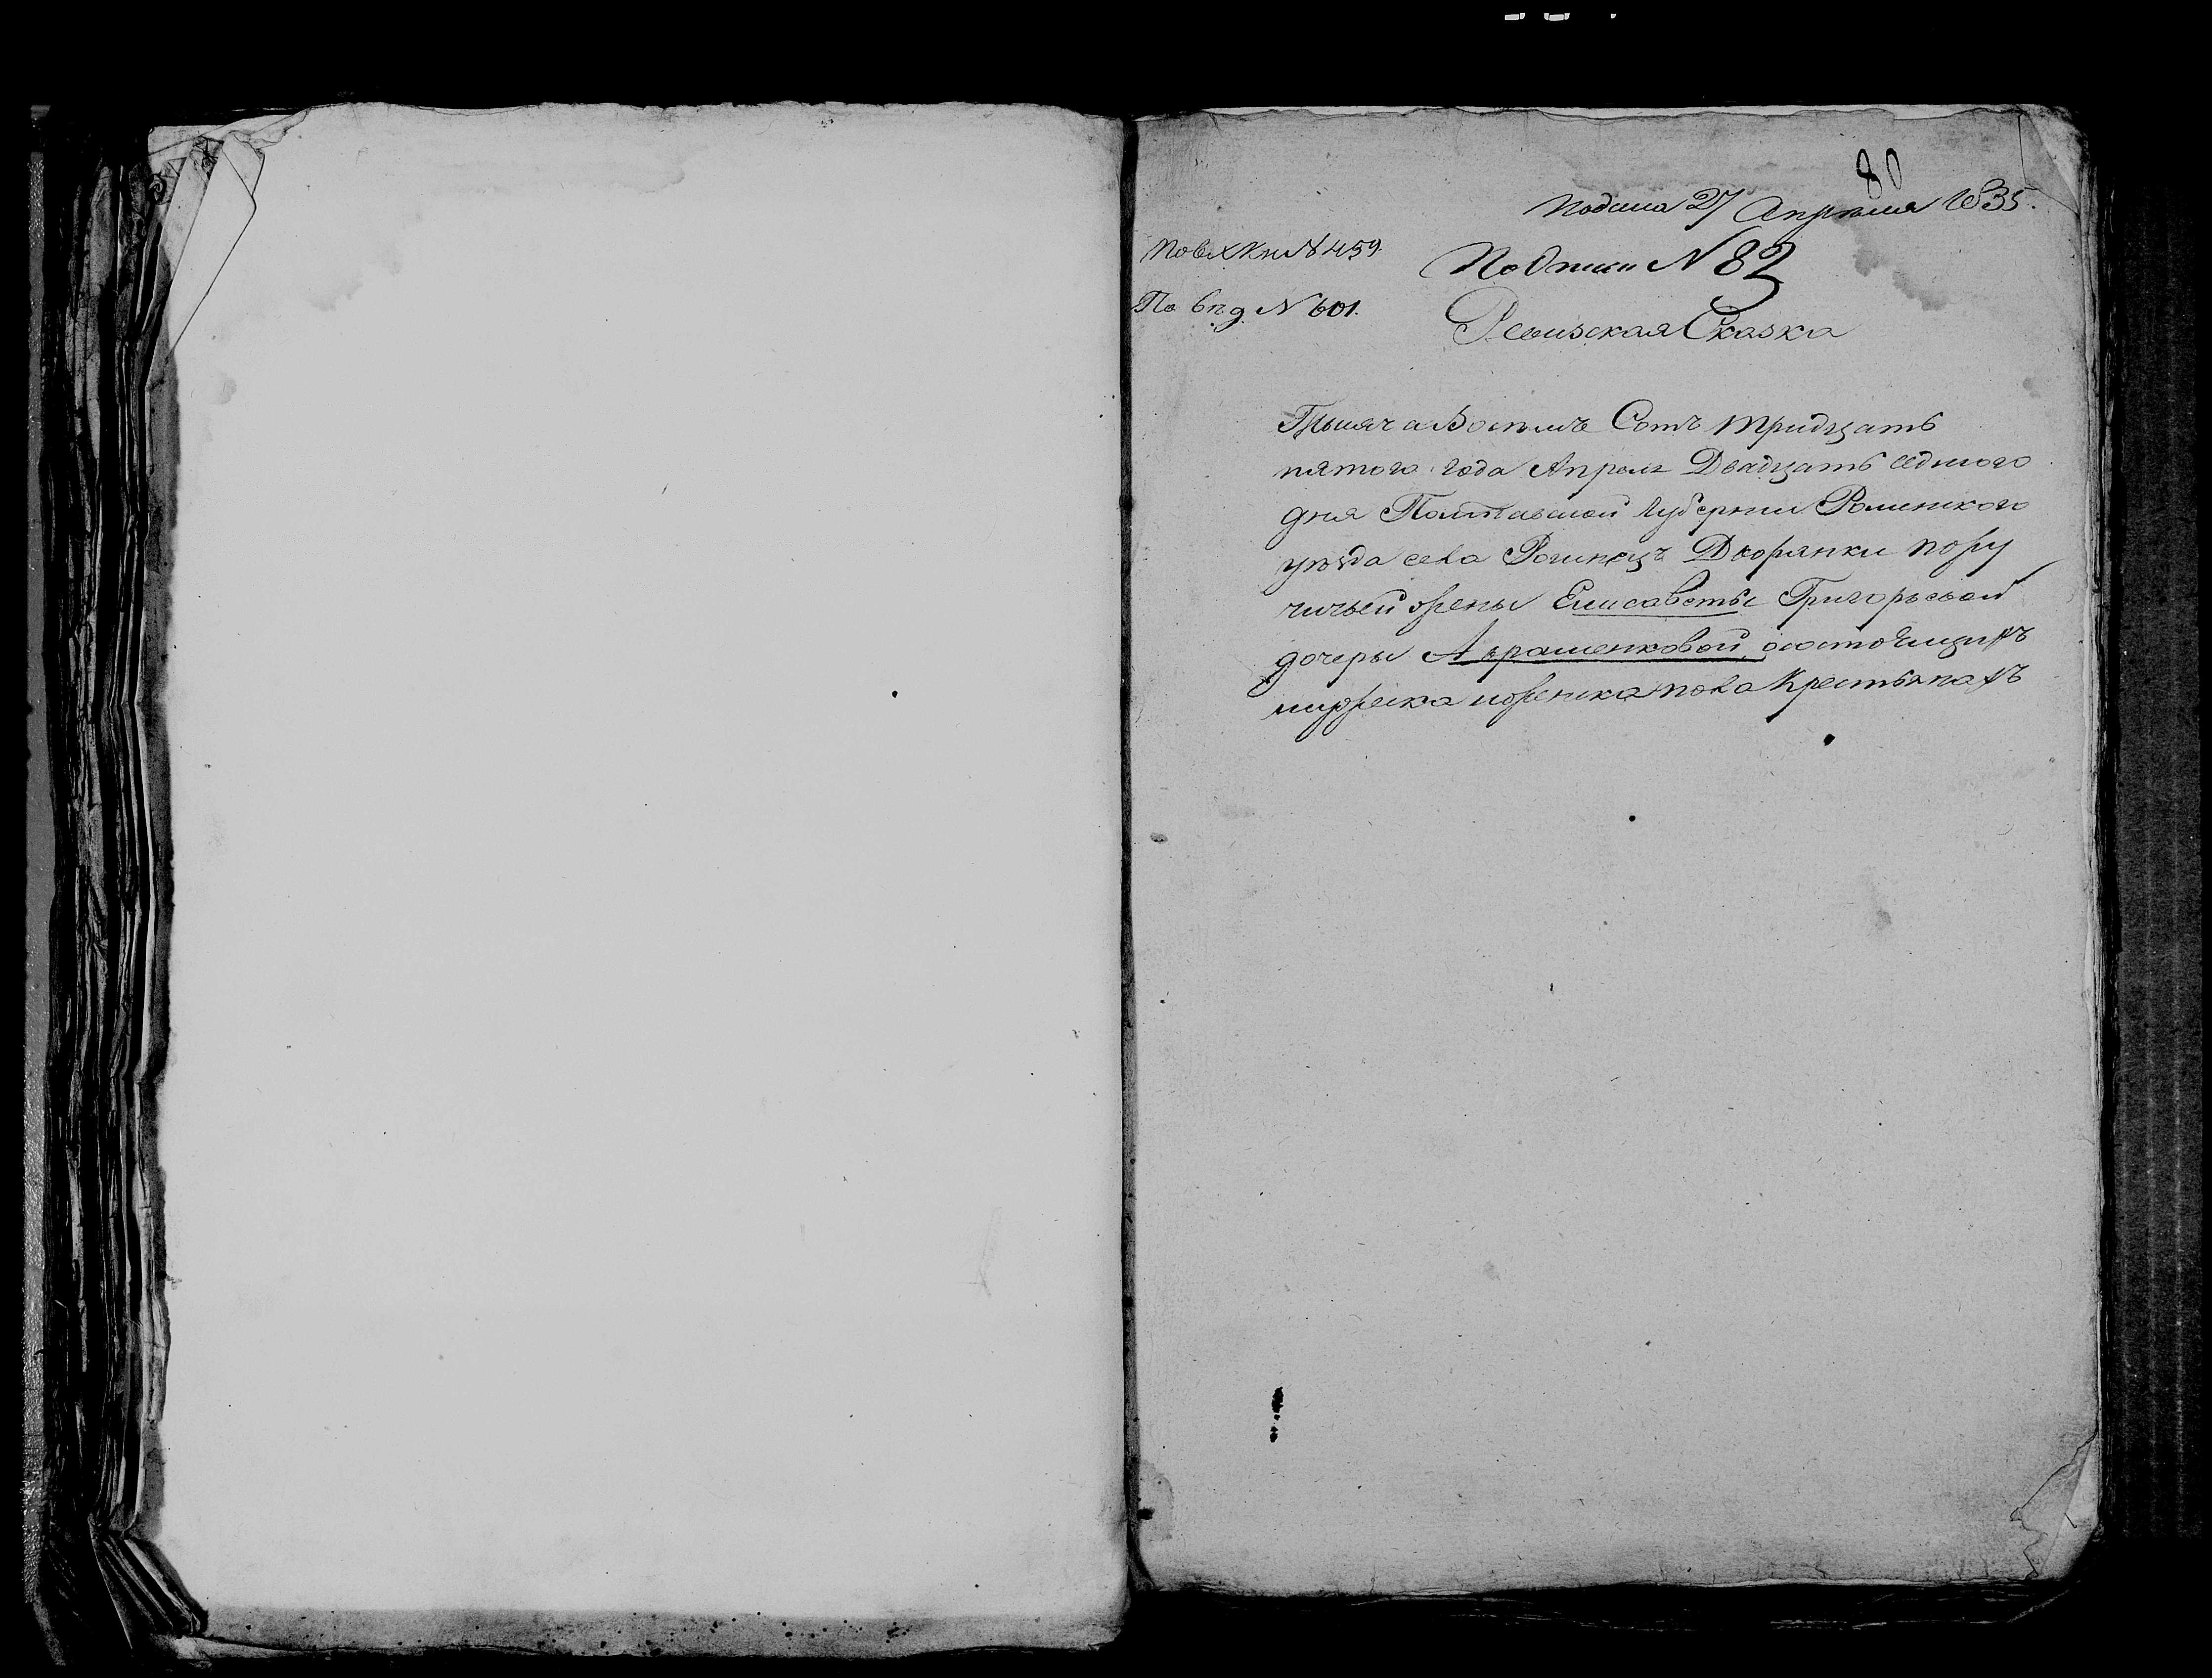 80
Подана 27 Апреля 1835.
По вх Кн № 459.
По Описи N 82
По вѣд N 601.
Ревизская Сказка
Тысяча Восемь Сотъ тридцать
пятого года Апреля Двадцать седмого
дня Полтавской Губернии Роменского
уезда села Рогинецъ Дворянки пору
чичьей жены Елисаветы Григорьевой
дочеры Аврашенковой, о состоящихъ
мужеска иженска пола Крестьянахъ